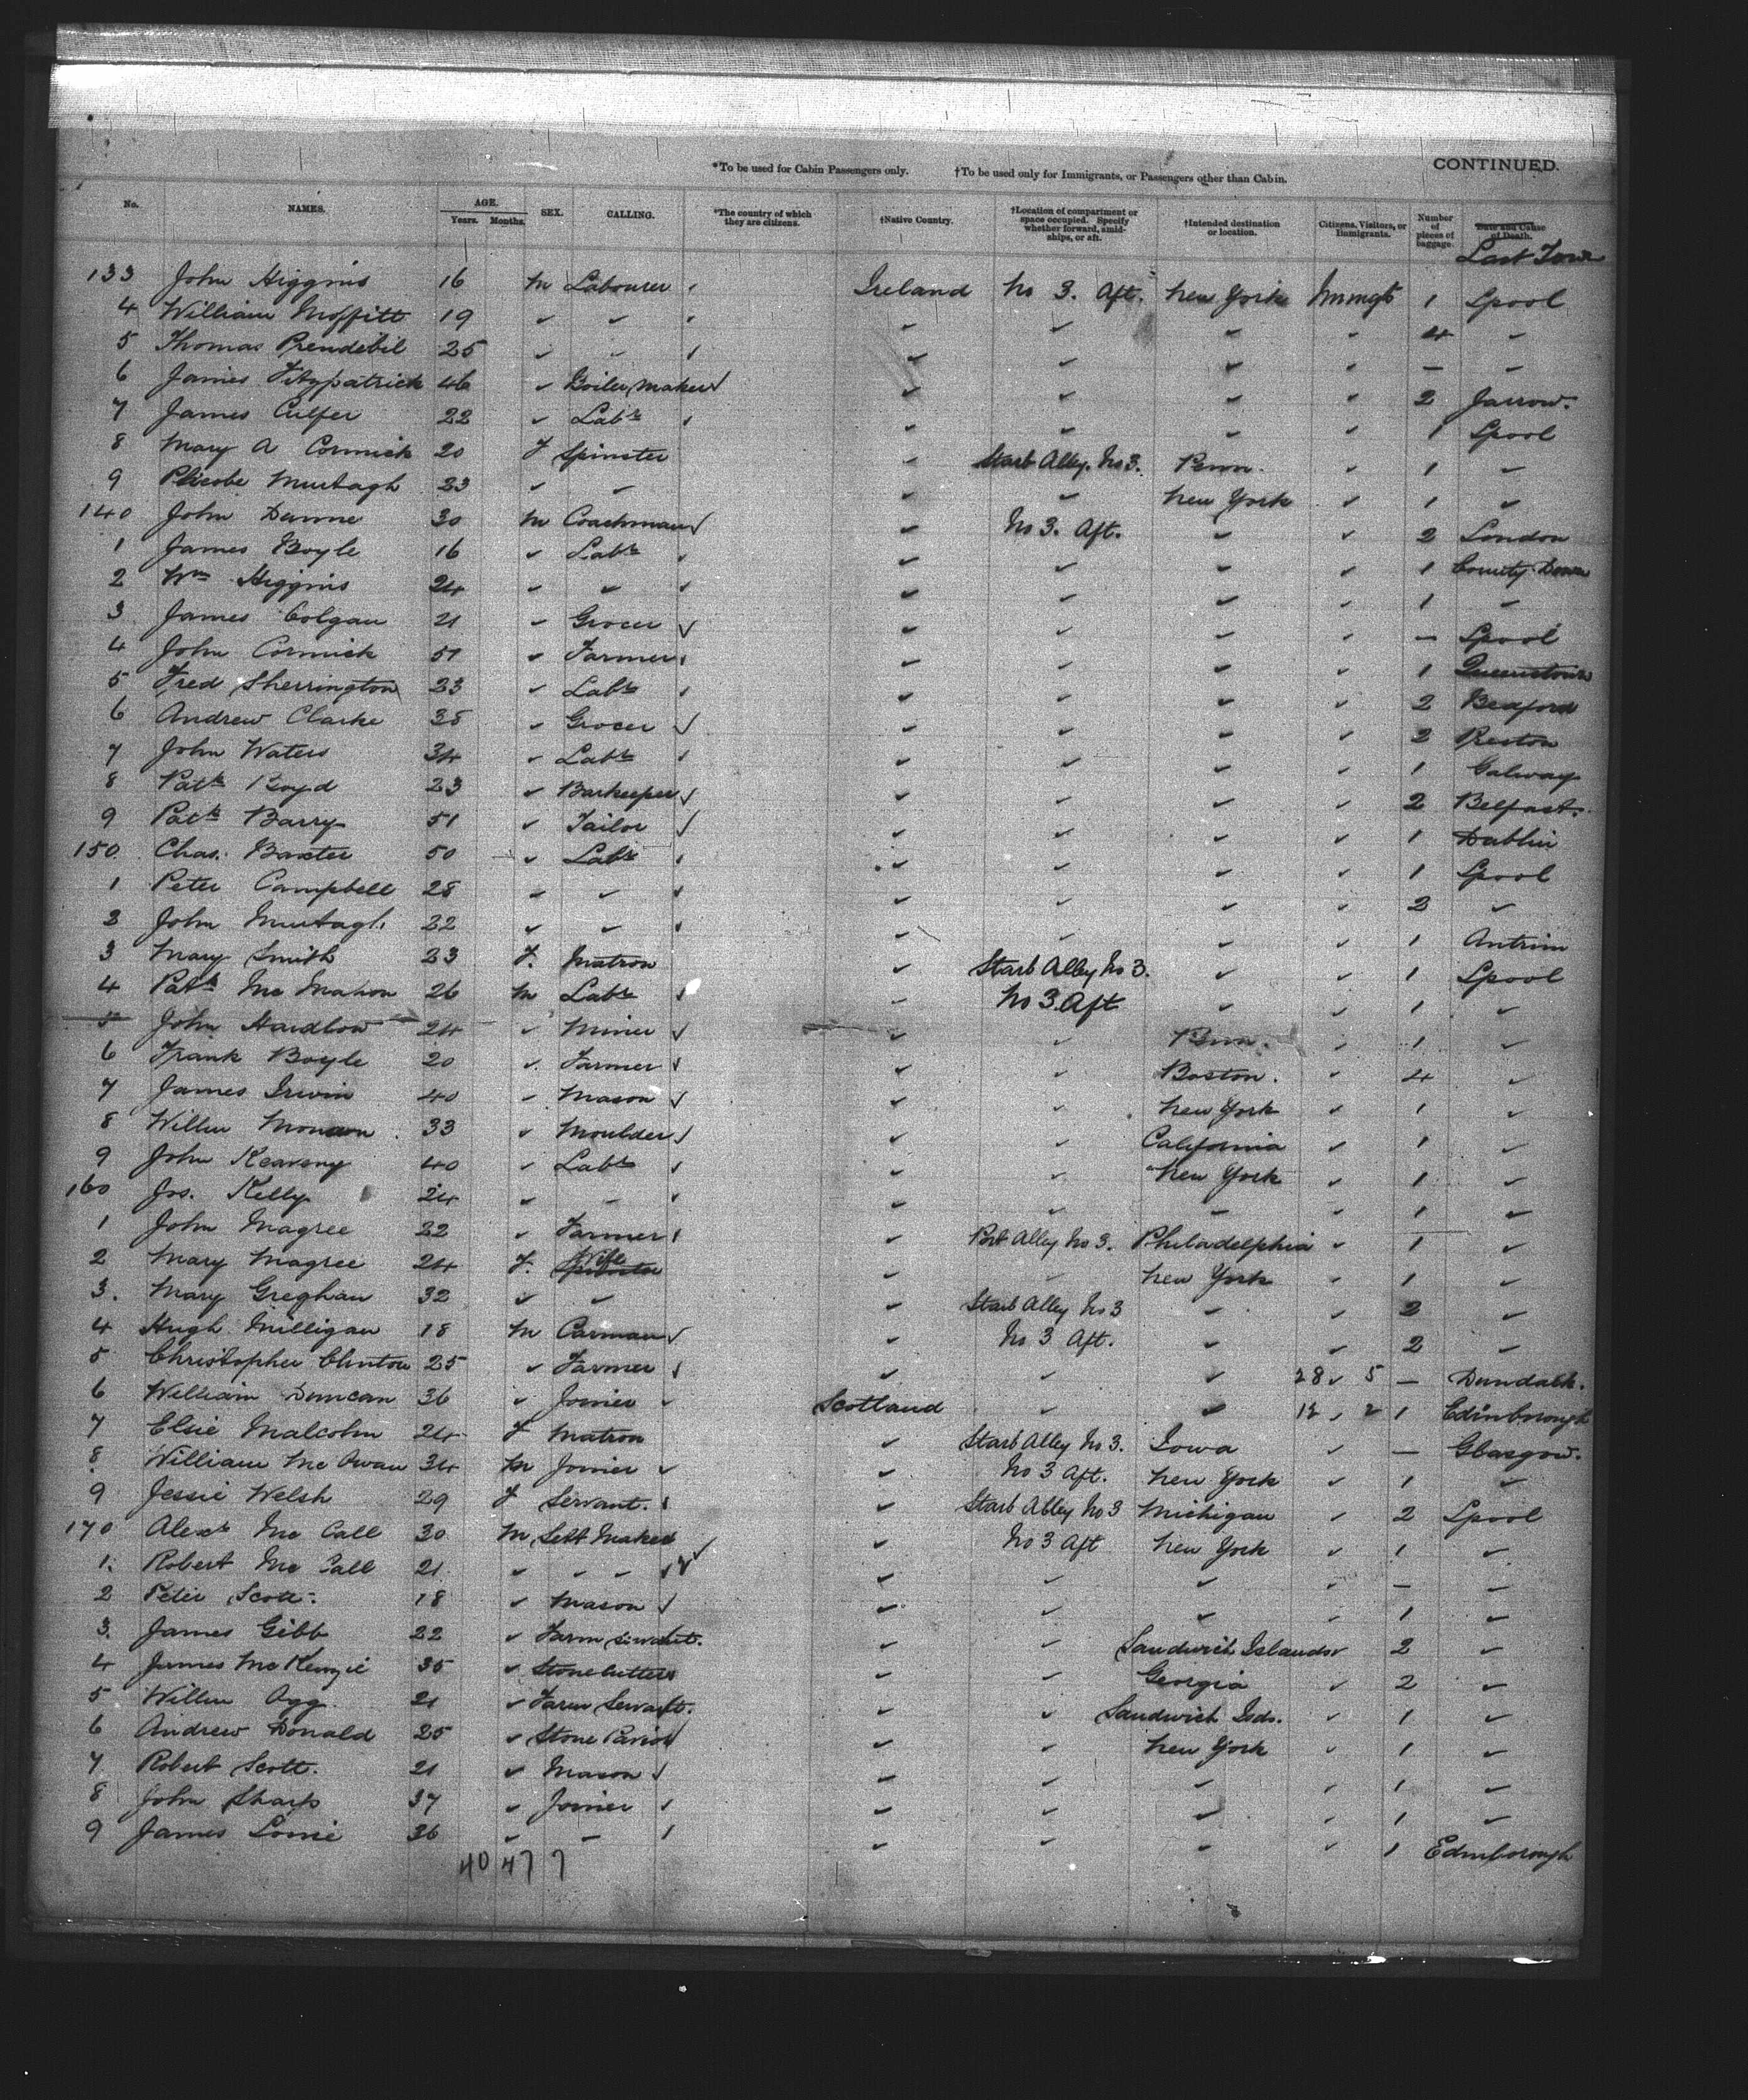 *To be used for Cabin Passengers only. †To be used only for Immigrants, or Passengers other than Cabin. CONTINUED.
No. NAMES. AGE. Years. Months. SEX. CALLING. *The country of which they are citizens. †Native Country. †Location of compartment or space occupied. Specify whether forward, amidships, or aft. †Intended destination or location. Citizens, Visitors, or Immigrants. Number of pieces of baggage. Date and Cause of Death.
Last Town
133 John Higgins 16 M Labourer Ireland No 3. Aft. New York Immgts 1 Lpool
4 William Moffitt 19 " " " " " " 4 "
5 Thomas Prendebil 25 " " " " " " — "
6 James Fitzpatrick 46 " Boiler Maker " " " " 2 Jarrow.
7 James Culfer 22 " Labr " " " " 1 Lpool
8 Mary A Cormick 20 F Spinster " Starb Alley. No 3. Penn. " 1 "
9 Phoebe Murtagh 23 " " " " New York " 1 "
140 John Dunne 30 M Coachman " No 3. Aft. " " 2 London
1 James Boyle 16 " Labr " " " " 1 County Down
2 Wm Higgins 24 " " " " " " 1 "
3 James Colgan 21 " Grocer " " " " — Lpool
4 John Cormick 51 " Farmer " " " " 1 Queenstown
5 Fred Sherrington 23 " Labr " " " " 2
6 Andrew Clarke 35 " Grocer " " " " 2 Preston
7 John Waters 34 " Labr " " " " 1 Galway
8 Patk Boyd 23 " Barkeeper " " " " 2 Belfast.
9 Patk Barry 51 " Tailor " " " " 1 Dublin
150 Chas. Baxter 50 " Labr " " " " 1 Lpool
1 Peter Campbell 28 " " " " " " 2 "
2 John Murtagh 22 " " " " " " 1 Antrim
3 Mary Smith 23 F. Matron " Starb Alley No 3. " " 1 Lpool
4 Patk Mc Mahon 26 M Labr " No 3 Aft " " 1 "
5 John Hardlow 24 " Miner " " Penn. " 1 "
6 Frank Boyle 20 " Farmer " " Boston. " 4 "
7 James Irwin 40 " Mason " " New York " 1 "
8 Willm 33 " Moulder " " California " 1 "
9 John Keaveny 40 " Labr " " New York " 1 "
160 Jos. Kelly 24 " " " " " " 1 "
1 John Magree 22 " Farmer " Port Alley No 3. Philadelphia " 1 "
2 Mary Magree 24 F. Spinster Wife " " New York " 1 "
3. Mary Greghan 32 " " " Starb Alley No 3 " " 2 "
4 Hugh Milligan 18 M Carman " No 3 Aft. " " 2 "
5 Christopher Clinton 25 " Farmer " " " 28 " 5 — Dundalk.
6 William Duncan 36 " Joiner Scotland " " 12 " 2 1 Edinborough
7 Elsie Malcolm 24 F Matron " Starb Alley No 3. Iowa " — Glasgow.
8. William Mc Owan 34 M Joiner " No 3 Aft. New York " 1 "
9 Jessie Welsh 29 F Servant. " Starb Alley No 3 Michigan " 2 Lpool
170 Alexr Mc Call 30 M Sett Maker " No 3 Aft New York " 1 "
1. Robert Mc Call 21 " " " " " " — "
2 Peter Scott 18 " Mason " " " " 1 "
3. James Gibb 22 " Farm servant. " " Sandwich Islands 2 "
4 James McKenzie 35 " Stonecutter " " Georgia " 2 "
5 Willm Ogg. 21 " Farm Servant. " " Sandwich Isds. " 1 "
6 Andrew Donald 25 " Stone Pavior " " New York " 1 "
7 Robert Scott. 21 " Mason " " " " 1 "
8 John Sharp 37 " Joiner " " " " 1 "
9 James Lorrie 36 " " " " " " 1 Edinborough
40 47 7